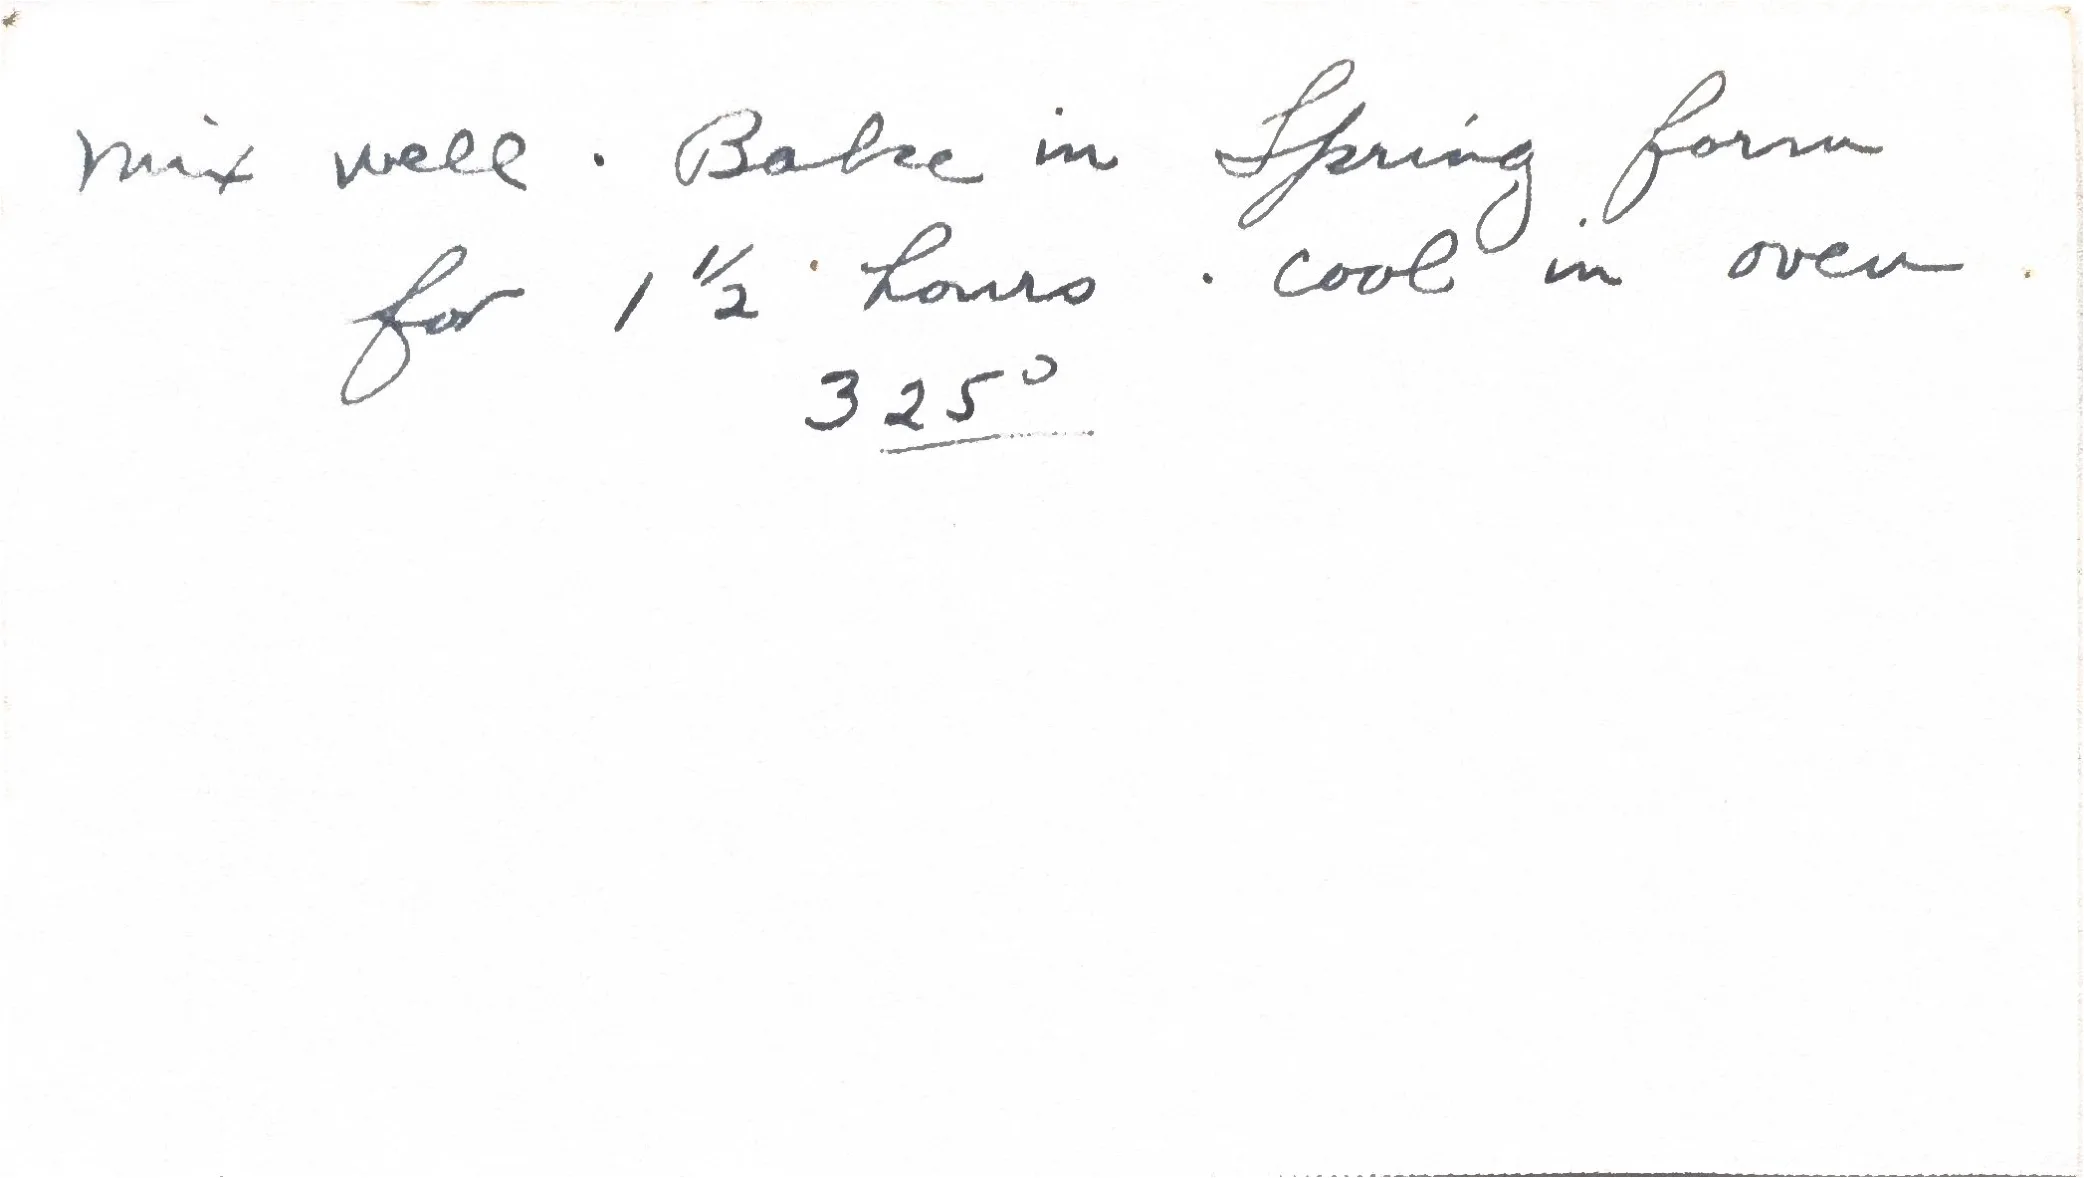 mix well. Bake in Spring form
for 1 1/2 hours. cool in oven.
325°